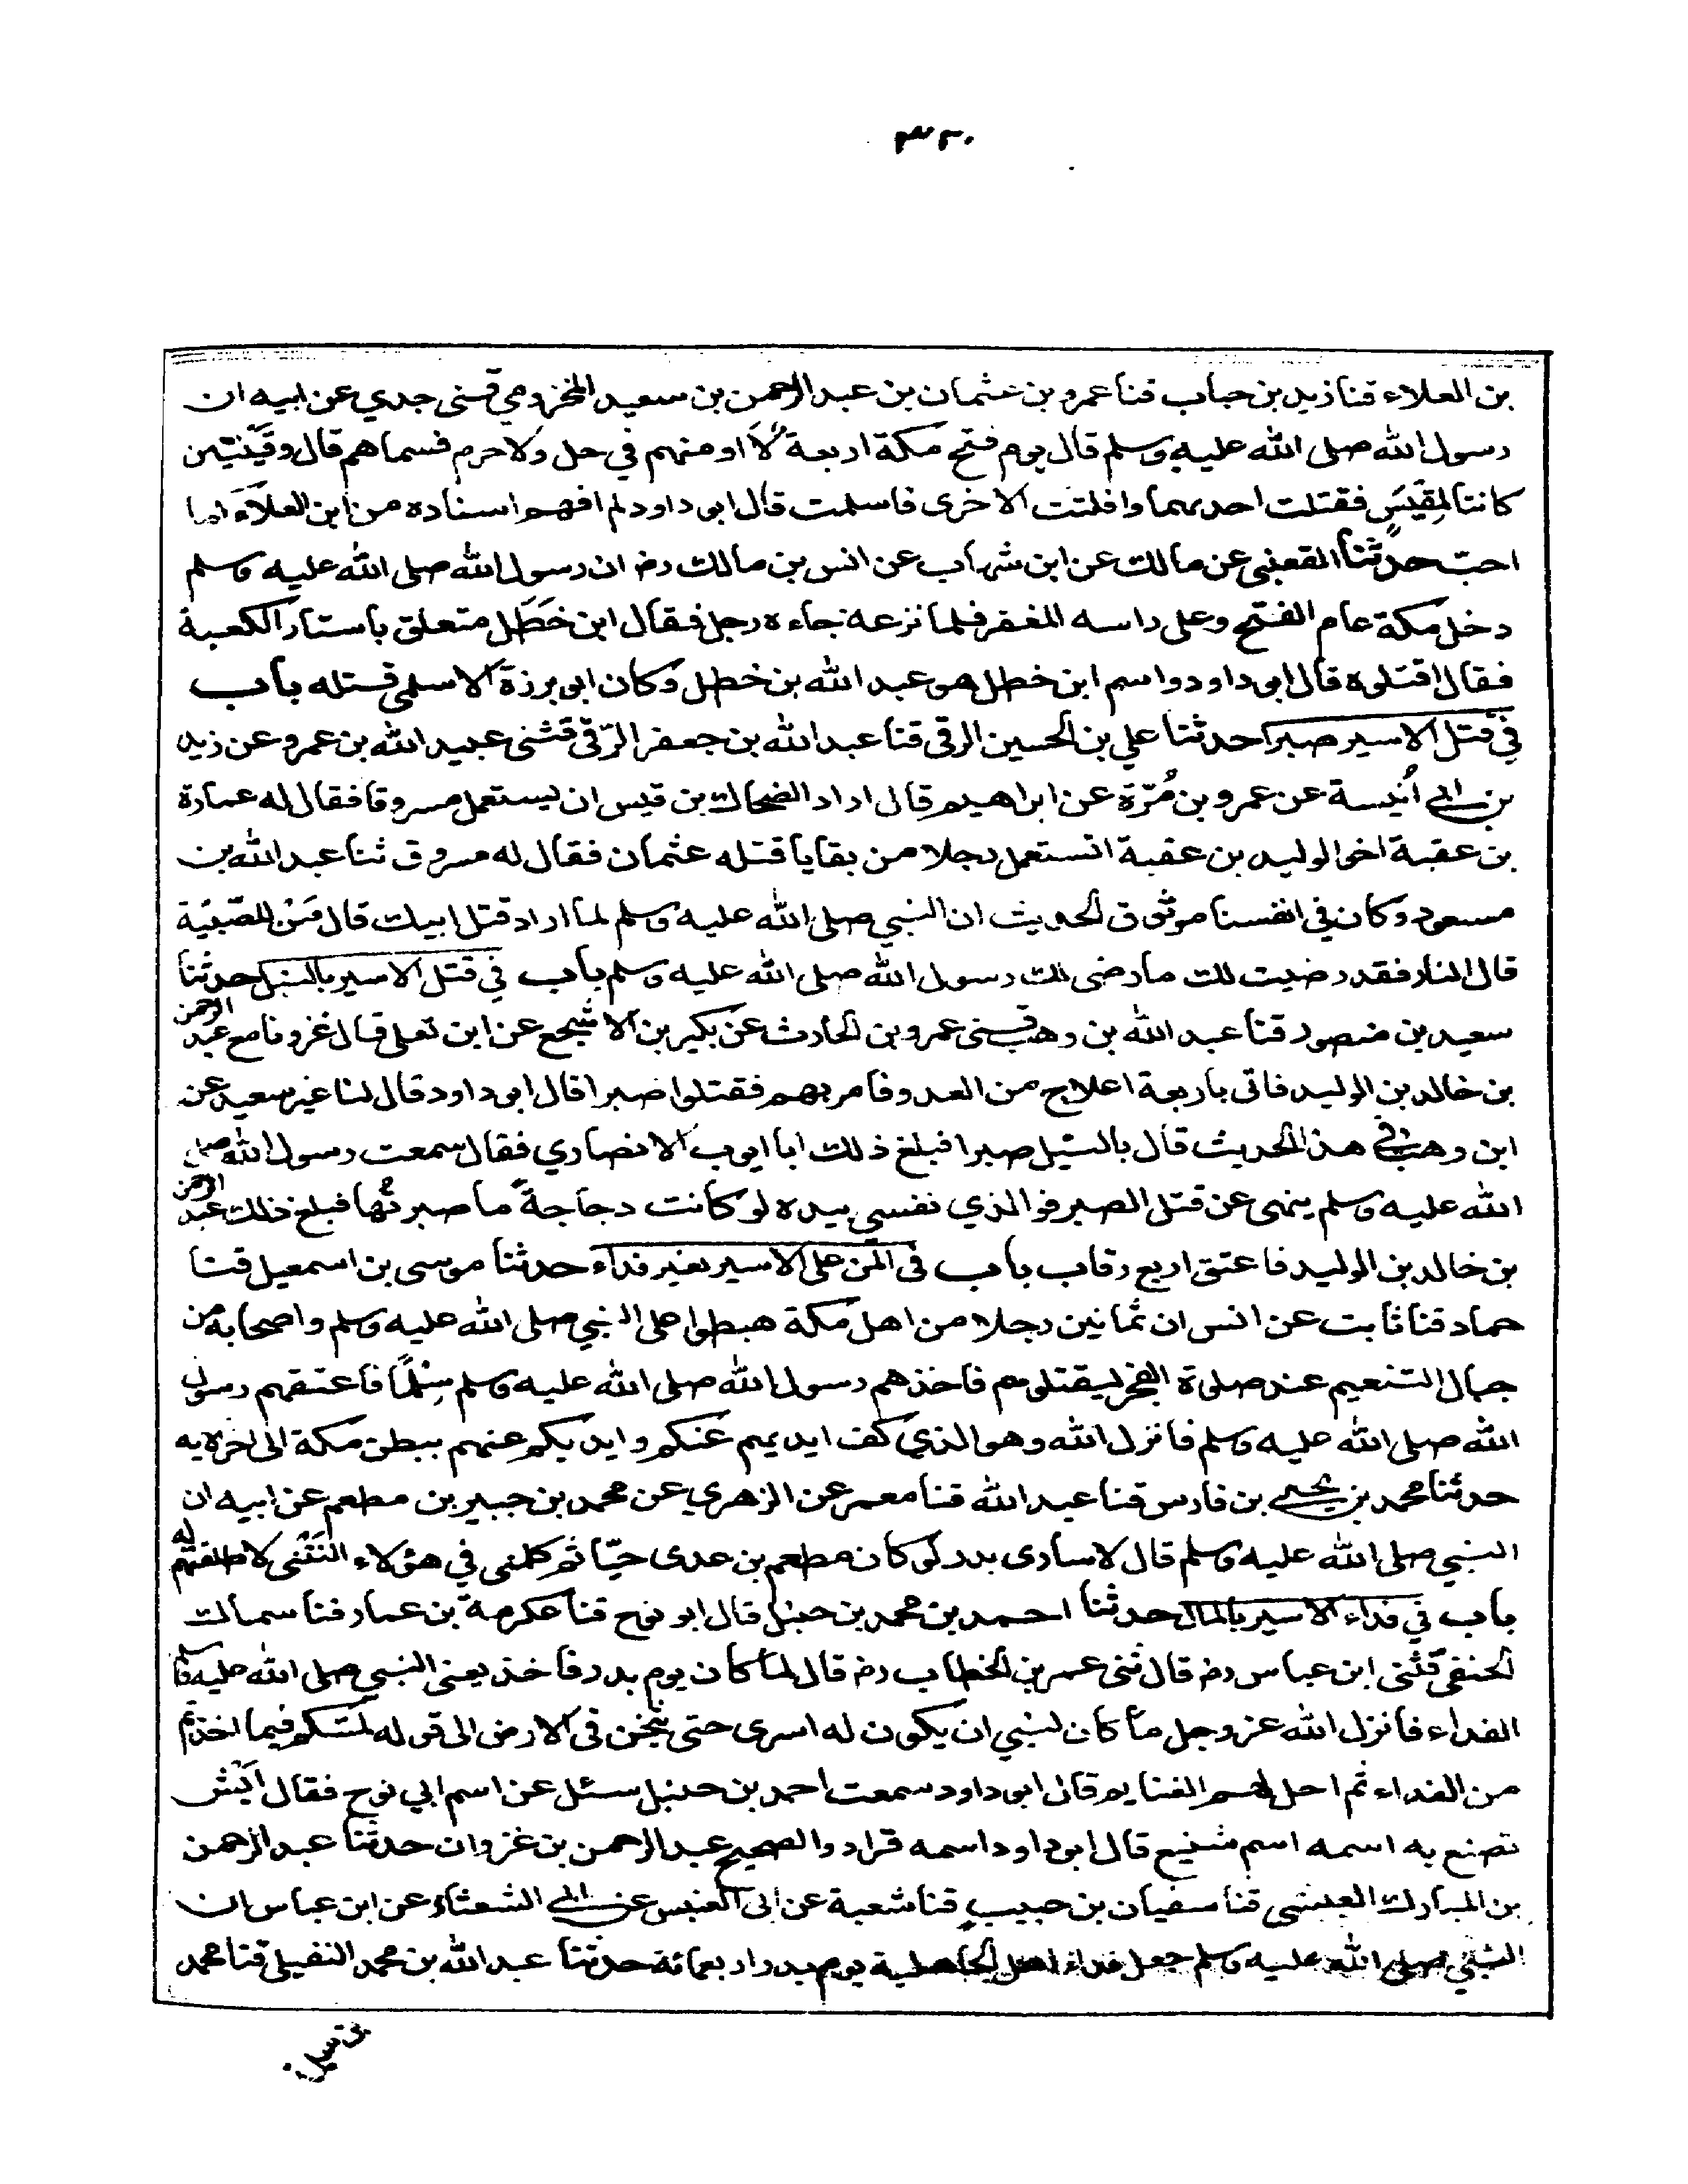 ٣٢٠
بن العلاء قنا زيد بن حباب قنا عمرو بن عثمان بن عبد الرحمن بن سعيد المخزومي قثنى جدي عن ابيه ان
رسول الله صلى الله عليه وسلم قال يوم فتح مكة اربعة لا اومنهم في حل ولا حرم فسماهم قال وقَينتين
كانتا لمِقيَسٍ فقتلت احديهما وافلتت الاخرى فاسلمت قال ابو داود لم افهم اسناده من ابن العلاء كما
احبّ حدثنا القعنبي عن مالك عن ابن شهاب عن انس بن مالك رضـ ان رسول الله صلى الله عليه وسلم
دخل مكة عام الفتح وعلى راسه المغفر فلما نزعه جاءه رجل فقال ابن خَطَل متعلق باستار الكعبة
فقال اقتلوه قال ابو داود واسم ابن خطل هو عبد الله بن خطل وكان ابو برزة الاسلمي قتله باب
في قتل الاسير صبرا حدثنا علي بن الحسين الرقي قنا عبد الله بن جعفر الرّقي قثنى عبيد الله بن عمرو عن زيد
بن ابي أُنيسة عن عمرو بن مُرّة عن ابراهيم قال اراد الضحاك بن قيس ان يستعمل مسروقا فقال له عمارة
بن عقبة اخو الوليد بن عقبة اتستعمل رجلا من بقايا قتله عثمان فقال له مسروق ثنا عبد الله بن
مسعود وكان في انفسنا موثوق الحديث ان النبي صلى الله عليه وسلم لما اراد قتل ابيك قال مَنْ للصّبيَة
قال النار فقد رضيت لك ما رضى لك رسول الله صلى الله عليه وسلم باب في قتل الاسير بالنبل حدثنا
سعيد بن منصور قنا عبد الله بن وهب قثنى عمرو بن الحارث عن بكير بن الاشجع عن ابن تعلى قال غزونا مع عبد الرحمن
بن خالد بن الوليد فاتى باربعة اعلاج من العدو فامر بهم فقتلوا صبرا قال ابو داود قال لنا غير سعيد عن
ابن وهب في هذا الحديث قال بالنبل صبرا فبلغ ذلك ابا ايوب الانصاري فقال سمعت رسول الله صلى
الله عليه وسلم ينهى عن قتل الصبر فوالذي نفسي بيده لو كانت دجاجةً ما صبرتُها فبلغ ذلك عبد الرحمن
بن خالد بن الوليد فاعتق اربع رقاب باب في المن على الاسير بغير فداء حدثنا موسى بن اسمعيل قنا
حماد قنا ثابت عن انس ان ثمانين رجلا من اهل مكة هبطوا على النبي صلى الله عليه وسلم واصحابه من
جبال التنعيم عند صلوة الفجر ليقتلوهم فاخذهم رسول الله صلى الله عليه وسلم سِلْمًا فاعتقهم رسول
الله صلى الله عليه وسلم فانزل الله وهو الذي كف ايديهم عنكم وايديكم عنهم ببطن مكة الى اخر الايه
حدثنا محمد بن يحيى بن فارس قنا عبد الله قنا معمر عن الزهري عن محمد بن جبير بن مطعم عن ابيه ان
النبي صلى الله عليه وسلم قال لاسارى بدر لو كان مطعم بن عدى حيّا ثم كلمني في هؤلاء النَتْنى لاطلقتهم له
باب في فداء الاسير بالمال حدثنا احمد بن محمد بن حنبل قال ابو نوح قنا عكرمة بن عمار قنا سماك
الحنفي قثنى ابن عباس رضـ قال ثنى عمر بن الخطاب رضـ قال لما كان يوم بدر فاخذ يعنى النبي صلى الله عليه وسلم
الفداء فانزل الله عز وجل ما كان لنبي ان يكون له اسرى حتى يثخن في الارض الى قوله لمسّكم فيما اخذتم
من الفداء ثم احل لهم الغنايم قال ابو داود سمعت احمد بن حنبل سئل عن اسم ابي نوح فقال ايش
تصنع به اسمه اسم شنيع قال ابو داود اسمه قراد والصحيح عبد الرحمن بن غزوان حدثنا عبد الرحمن
بن المبارك العيشى قنا سفيان بن حبيبٍ قنا شعبة عن ابي العنبس عن ابي الشعثاء عن ابن عباس ان
النبي صلى الله عليه وسلم جعل فداء اهل الجاهلية يوم بدر اربعمائة حدثنا عبد الله بن محمد النفيلي قنا محمد